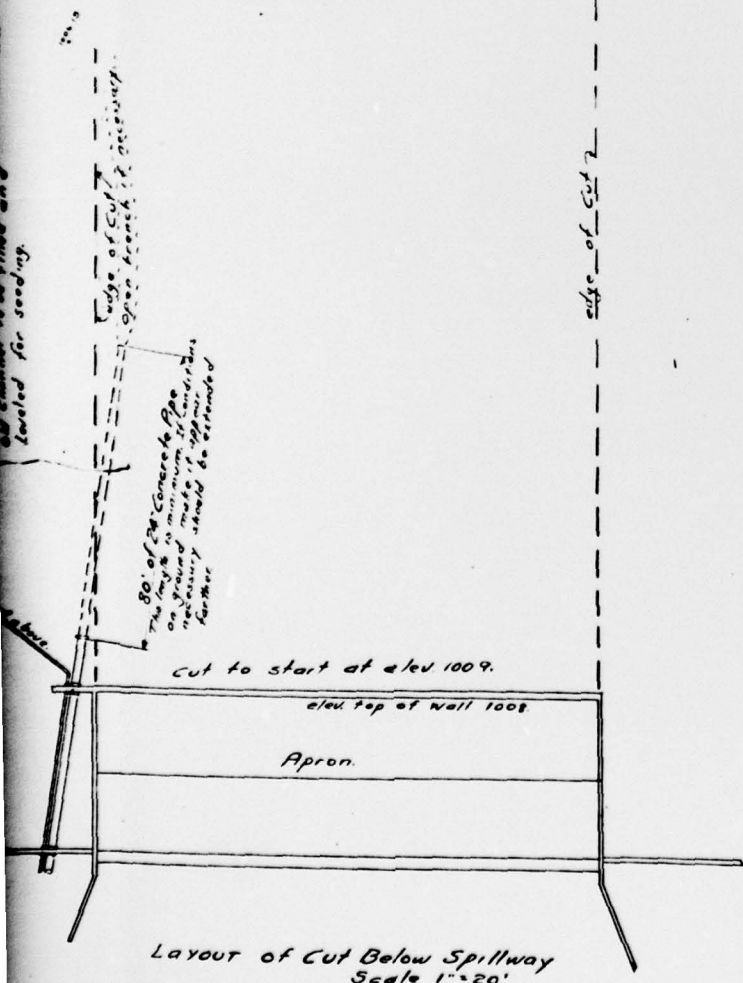 Leveled for seeding.
edge of Cut
open trench if necessary
edge of Cut
80' of 24" Concrete Pipe
The length is minimum. If conditions
on ground make it appear
necessary should be extended
farther.
above.
Cut to start at elev. 1009.
elev. top of wall 1008
Apron.
Layout of Cut Below Spillway
Scale 1"=20'